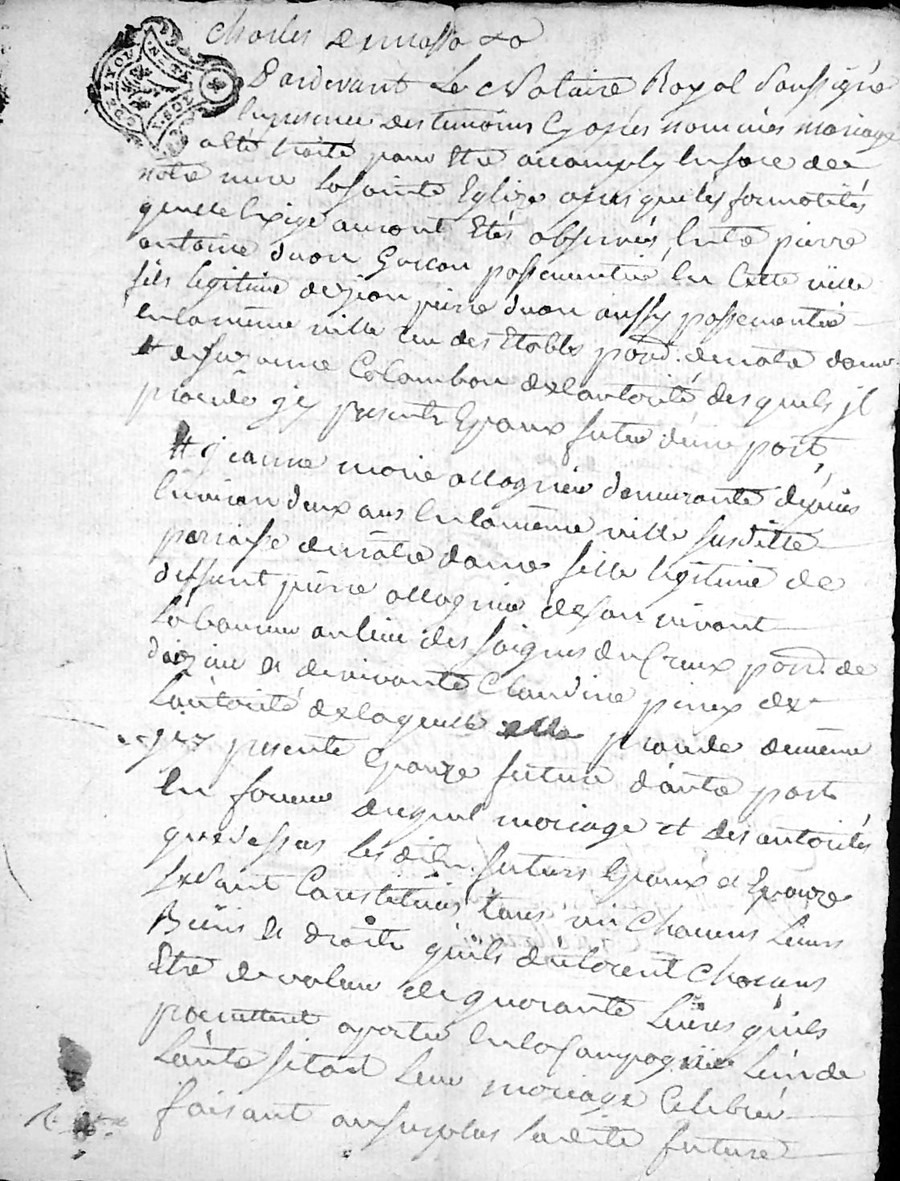 Charles Demasso &a
Pardevant Le Notaire Royal Soussigné
En presence des temoins Cy après nommés mariage
a été traité pour Etre accomply En face de
notre mere La Sainte Eglize apres que les formalités
quelle Exige auront Etés observés Entre pierre
antoine Garcon passementier En Cette ville
fils legitime de jean pierre aussy passementier
En la même ville rue des Etobles parr. de notre dame
# de Suzanne Colombon de Lautorité desquels jl
procede jcy present Epoux futur d'une part
# Et jeanne marie allagnier demeurante depuis
Environ deux ans En la même ville Susditte
parroisse de notre dame fille legitime de
deffunt pierre allagnier de son vivant
Laboureur au lieu des Saignes du Creux parr. de
et de vivante Claudine de
Lautorité de laquelle elle procede de même
jcy presente Epouze future d'autre part
En faveur duquel mariage et des autorités
que dessus les dits futurs Epoux et Epouze
Se Sont Constitués tous un Chacuns Leurs
Biens et droits qu'ils déclorent Chacuns
Etre de valeur de quarante Livres qu'ils
promettent aporter En la Compagnie L'un de
L'autre sitost Leur mariage Celebré
faisant au surplus Laditte future